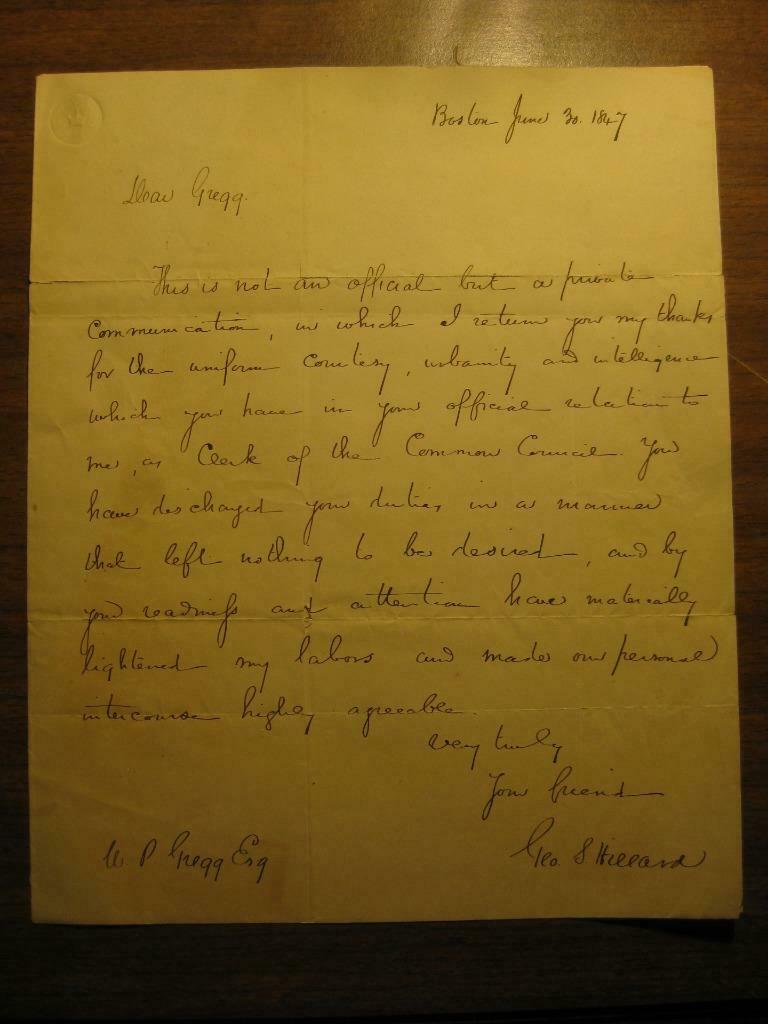 Boston June 30. 1847
Dear Gregg.
This is not an official but a private
communication, in which I return you my thanks
for the uniform courtesy, urbanity and intelligence
which you have in your official relation to
me, as Clerk of the Common Council. You
have discharged your duties in a manner
that left nothing to be desired, and by
your readiness and attention have materially
lightened my labors and made our personal
intercourse highly agreeable.
Very truly
Your friend
Geo. S Hillard
W P Gregg Esq